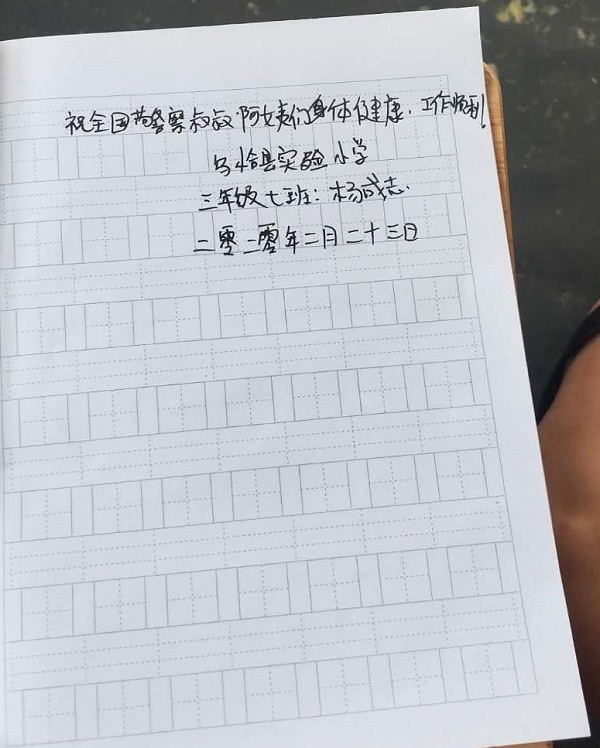 祝全国警察叔叔阿姨们身体健康，工作顺利！
乌恰县实验小学
三年级七班：杨成志
二零二零年二月二十三日